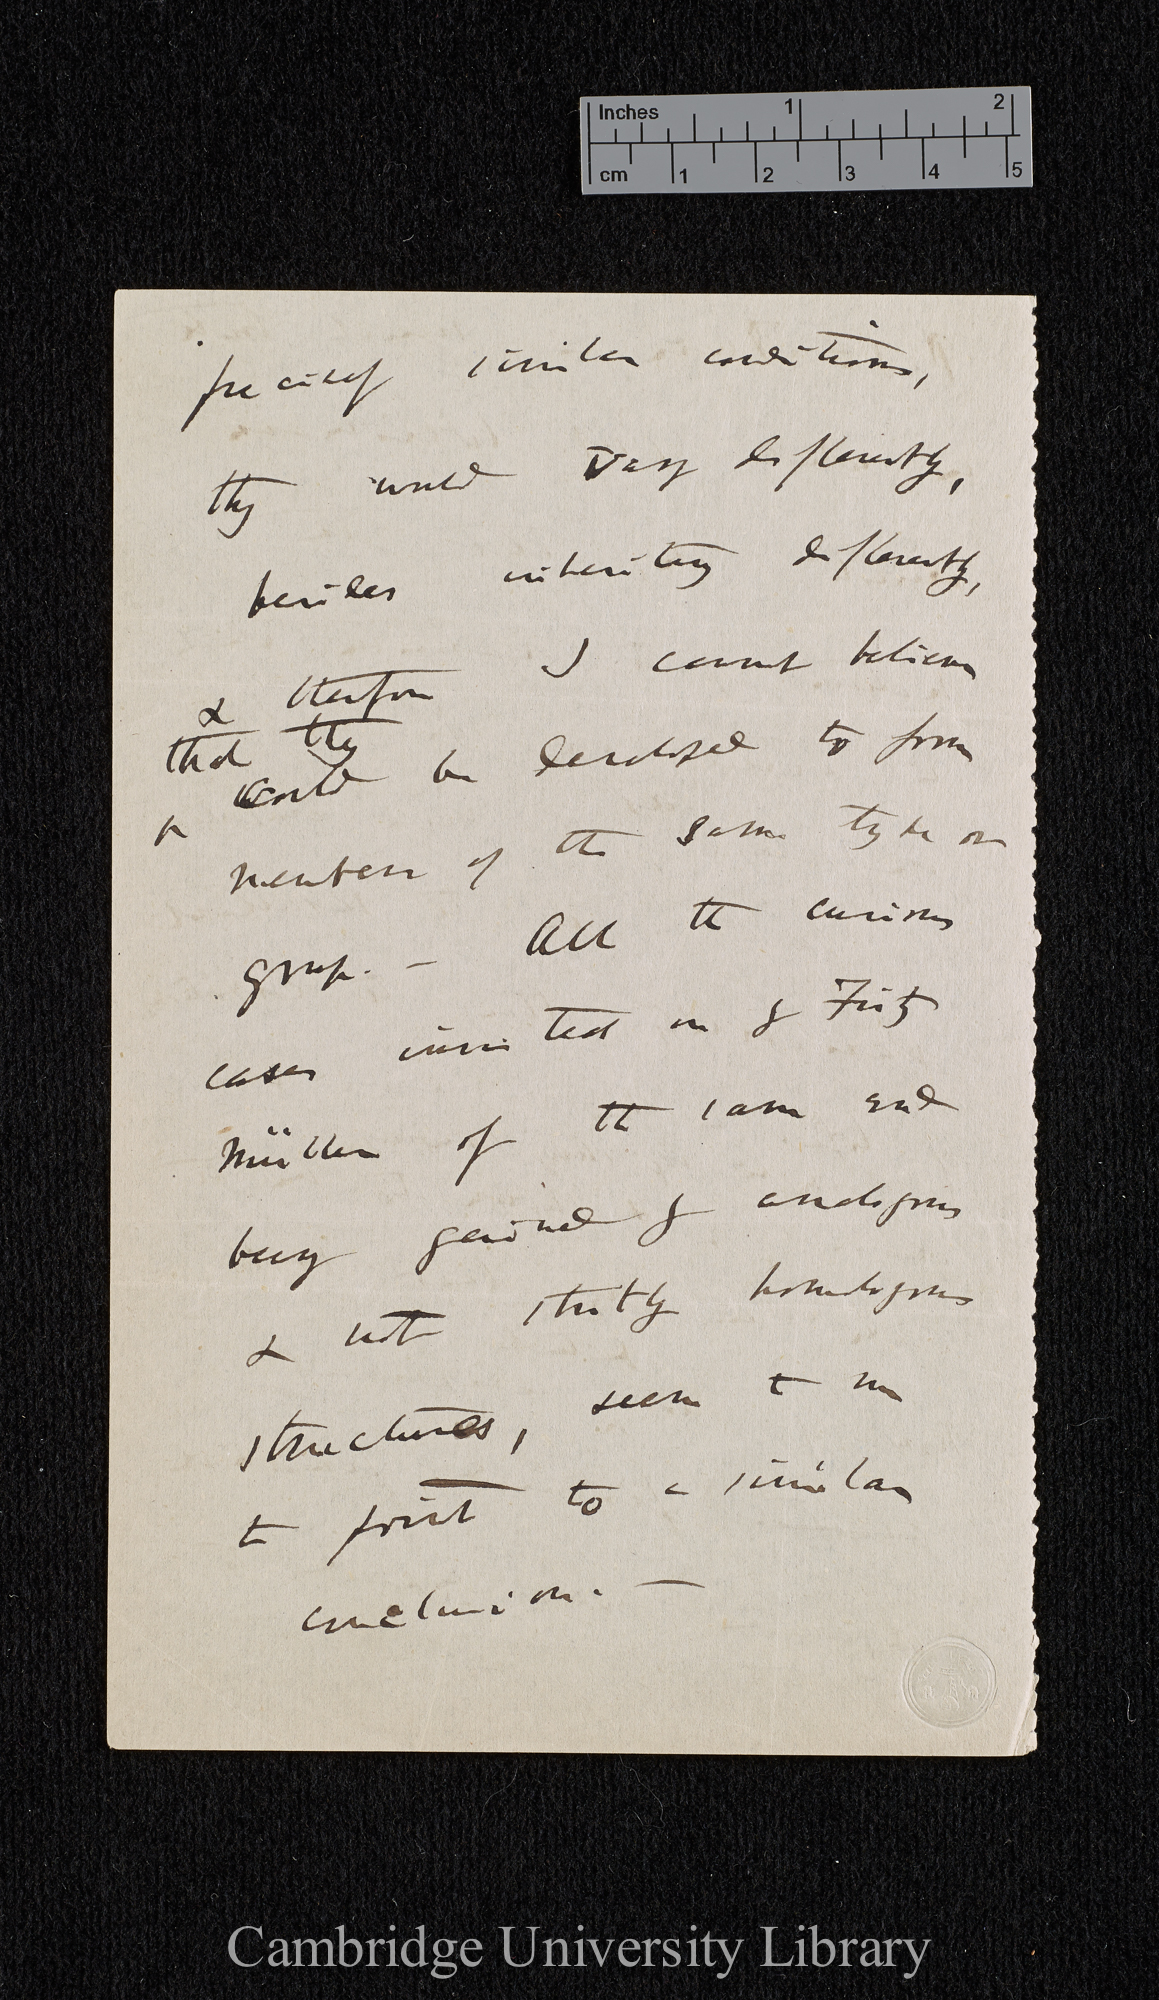 Inches 1 2
cm 1 2 3 4 5
precisely similar conditions,
they would vary differently,
besides inheriting differently,
& therefore I cannot believe
that they
could be developed to form
members of the same type or
group. — All the curious
cases insisted on by Fritz
Müller of the same end
being gained by analogous
& not strictly homologous
structures, seem to me
to point to a similar
conclusion. —
Cambridge University Library